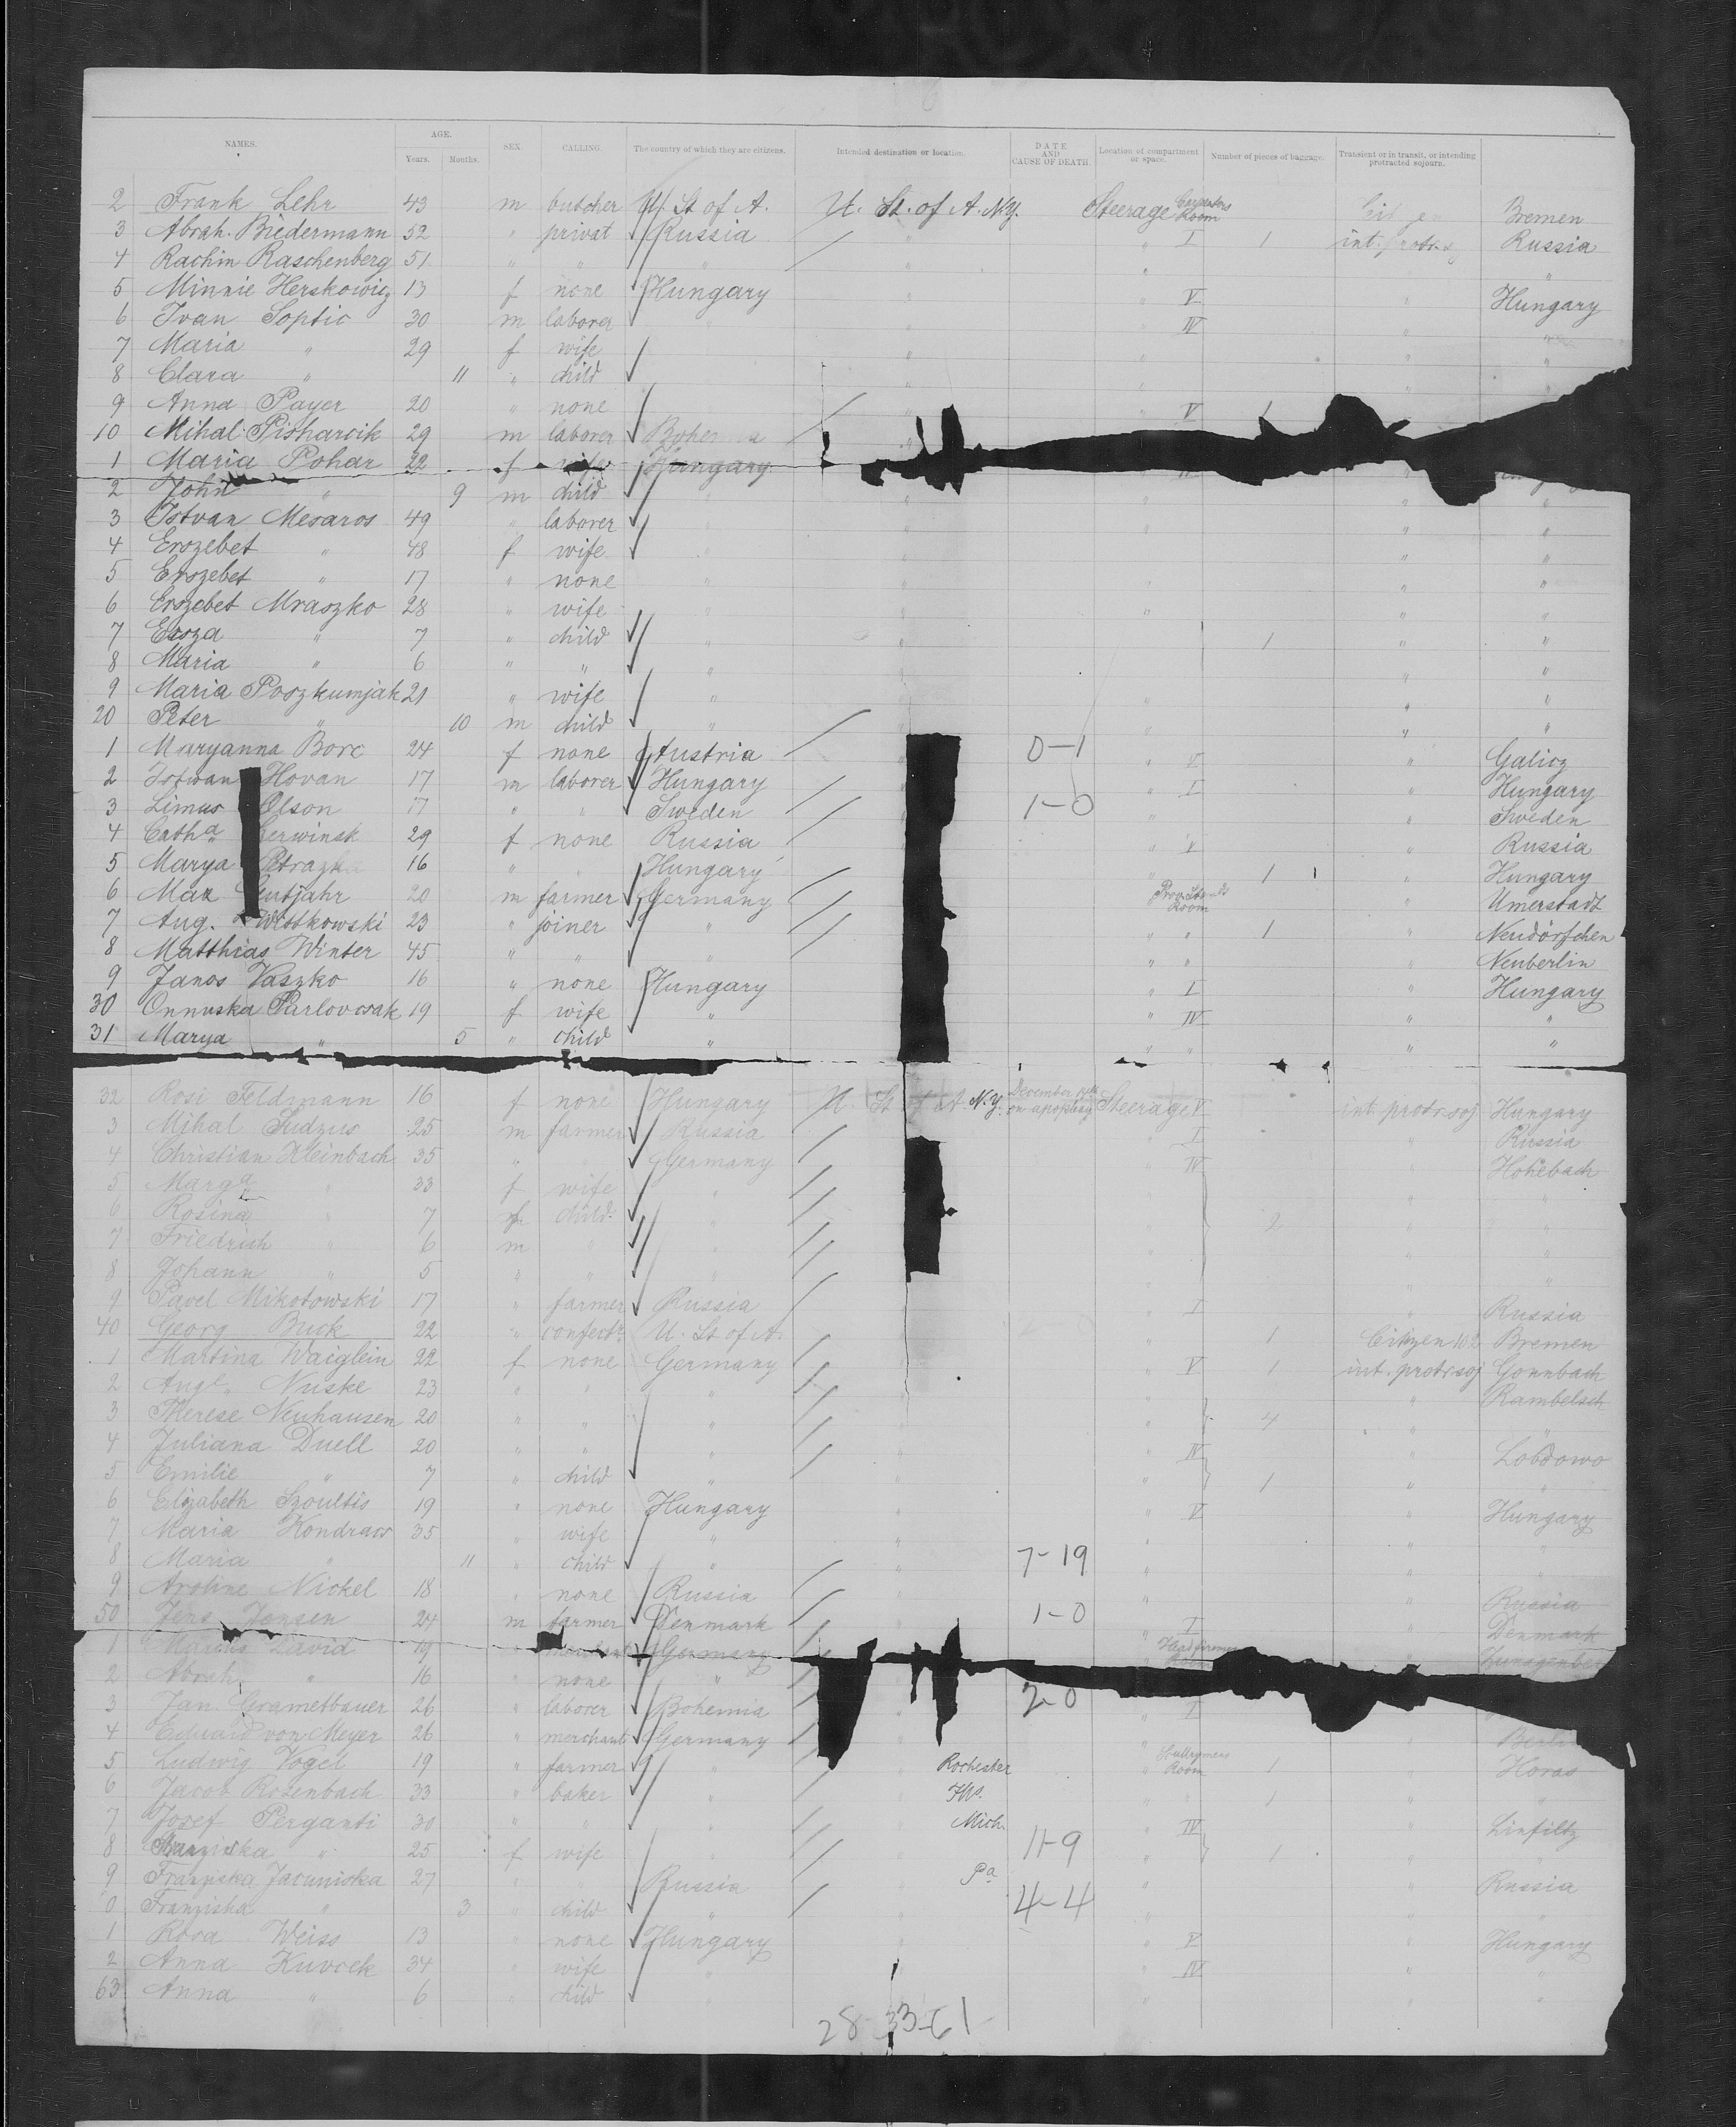 NAMES. AGE. Years. Months. SEX. CALLING. The country of which they are citizens. Intended destination or location. DATE AND CAUSE OF DEATH. Location of compartment or space. Number of pieces of baggage. Transient or in transit, or intending protracted sojourn.
2 Frank Lehr 43 m butcher U. St of A. U. St. of A. N.Y. Steerage Carpenters Room Bremen
3 Abrah. Biedermann 52 " privat Russia " " I 1 Russia
4 Rachin Raschenberg 51 " " " " " "
5 Minnie Herskowicz 13 f none Hungary " " V " Hungary
6 Ivan Soptic 30 m laborer " " " IV " "
7 Maria " 29 f wife " " " "
8 Clara " 11 " child " " " "
9 Anna Payer 20 " none V 1
10 Mihal Pisharcik 29 m laborer Bohemia "
1 Maria Pohar 22 f wife Hungary
2 John " 9 m child " " " "
3 Istvan Mesaros 49 " laborer " " " "
4 Erszebet " 48 f wife " " " "
5 Erszebet " 17 " none " " " " "
6 Erszebet Mraszko 28 " wife " " " " "
7 Ersza " 7 " child " " 1 " "
8 Maria " 6 " " " " " "
9 Maria Poszkumjak 21 " wife " " " " "
20 Peter " 10 m child " " " " "
1 Maryanna Borc 24 f none Austria 0-1 " V " Galicz
2 Istwan Hovan 17 m laborer Hungary " I " Hungary
3 Limus Olson 17 " " Sweden 1-0 " " Sweden
4 Catha Gerwinsk 29 f none Russia " V " Russia
5 Marya Petrazka 16 " " Hungary " 1 " Hungary
6 Max Gutjahr 20 m farmer Germany Room " Umerstadt
7 Aug. Wittkowski 23 " joiner " " " 1 " Neudörfchen
8 Matthias Winter 45 " " " " " " Neuberlin
9 Janos Vaszko 16 " none Hungary " I " Hungary
30 Onnuska Parlovcsak 19 f wife " " IV " "
31 Marya " 5 " child " " " " "
32 Rosi Feldmann 16 f none Hungary U. St of A. N.Y. December Steerage V int. protr. soj Hungary
3 Mihal Sudzus 25 m farmer Russia " I " Russia
4 Christian Kleinbach 35 " " Germany " IV Hohebach
5 Marga " 33 f wife " " " "
6 Rosina " 7 f child " " 2 " "
7 Friedrich " 6 m " " " " "
8 Johann " 5 " " " " " "
9 Pavel Mikotowski 17 " farmer Russia " I " Russia
40 Georg Buck 22 " confectr. U. St. of A. " 1 Citizen Bremen
1 Martina Waiglein 22 f none Germany " V 1 int. protr. soj Gonnbach
2 Auge. Nuske 23 " " " " " Rambelsch
3 Therese Neuhausen 20 " " " " " 4 " "
4 Juliana Duell 20 " " " " " IV " Lobdowo
5 Emilie " 7 " child " " " 1 " "
6 Elizabeth Szoultis 19 " none Hungary " " V " Hungary
7 Maria Kondracs 35 " wife " " " " "
8 Maria " 11 " child " " 7-19 " " "
9 Aroline Nickel 18 " none Russia " " " Russia
50 Jens Jensen 24 m farmer Denmark 1-0 " I " Denmark
1 David 19 Germany " "
2 Abrah. " 16 " none "
3 Jan Grametbauer 26 " laborer Bohemia 2-0 " I
4 Eduard von Meyer 26 " merchant Germany " " Berlin
5 Ludwig Vogel 19 " farmer " " Rochester " Room 1 " Horas
6 Jacob Rosenbach 33 " baker " " " " 1 " "
7 Josef Perganti 30 " " " " Mich. " IV " Linfiltz
8 Franziska " 25 f wife " " 11-9 " 1 " "
9 Franziska Jacuniska 27 " " Russia " Pa " " Russia
0 Franziska " 3 " child " " 4-4 " " "
1 Rosa Weiss 13 " none Hungary " " V " Hungary
2 Anna Kuvcek 34 " wife " " " IV " "
63 Anna " 6 " child " " " "
28-33-61